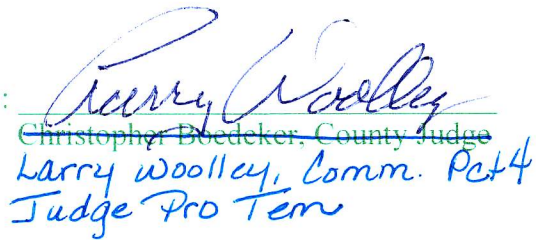 : Larry Woolley
Christopher Boedeker, County Judge
Larry Woolley, Comm. Pct 4
Judge Pro Tem